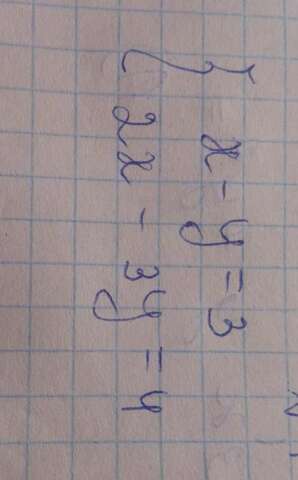 { x - y = 3
2x - 3y = 4